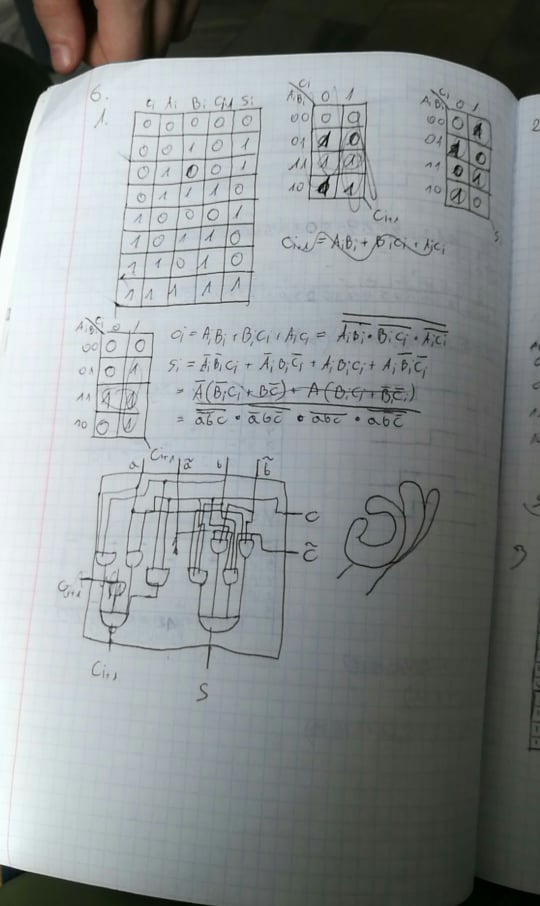 6.
1.
Ci Ai Bi Ci+1 Si
0 0 0 0 0
0 0 1 0 1
0 1 0 0 1
0 1 1 1 0
1 0 0 0 1
1 0 1 1 0
1 1 0 1 0
1 1 1 1 1
Ci
AiBi 0 1
00 0 0
01 1 0
11 1 1
10 1
Ci+1
Ci+1 = AiBi + BiCi + AiCi
Ci
AiBi 0 1
00 0 1
01 1 0
11 0 1
10 1 0
Si
Ci
AiBi 0 1
00 0 0
01 0 1
11 1 1
10 0 1
Ci+1
Ci = AiBi + BiCi + AiCi = A̅i̅B̅i̅ · B̅i̅C̅i̅ · A̅i̅C̅i̅
Si = A̅iB̅iCi + A̅iBiC̅i + AiBiCi + AiB̅iC̅i
= A̅(B̅iCi + BC̅) + A(BiCi + B̅iC̅i)
= a̅b̅c · a̅bc̅ · abc · ab̅c̅
a a̅ b b̅
c
c̅
Ci+1
Ci+1
S
2
3